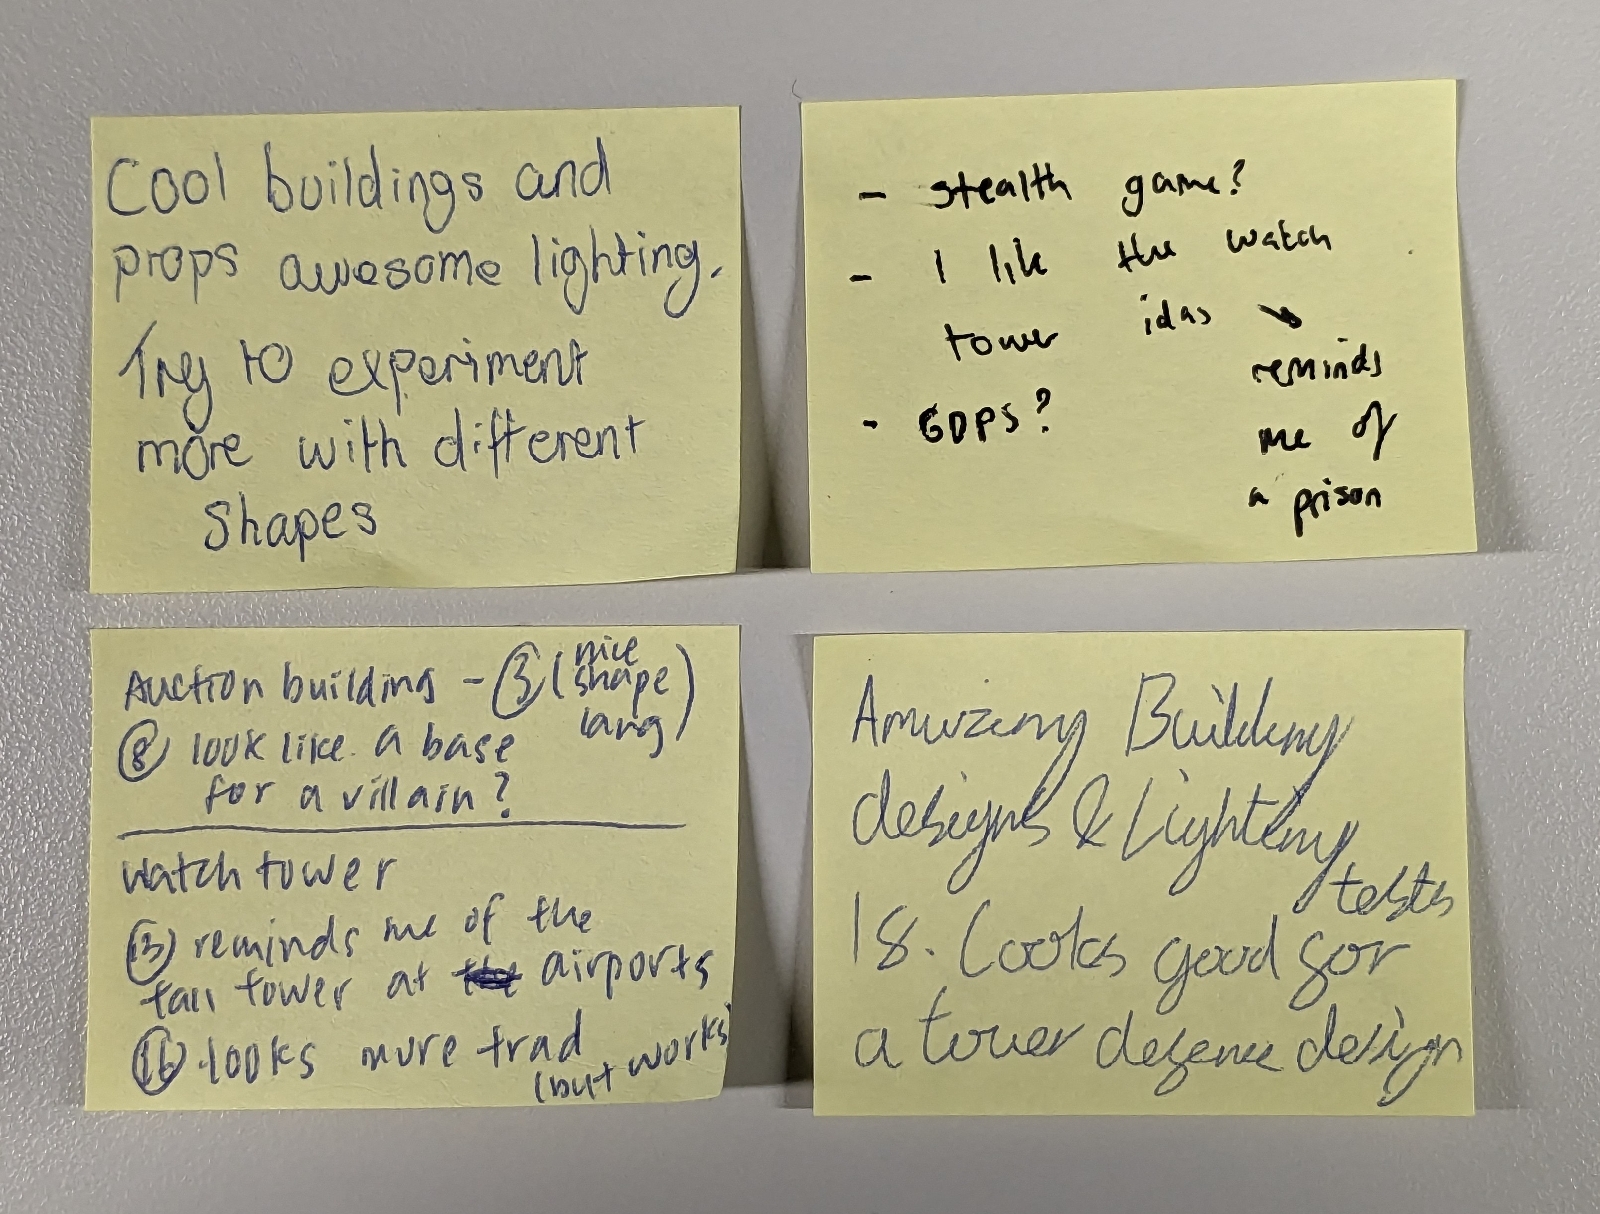 Cool buildings and
props awesome lighting.
Try to experiment
more with different
shapes
- stealth game?
- I like the watch
tower idas ↘
reminds
me of
a prison
- GDPS?
Auction building - ③ (nice
shape
lang)
⑧ look like a base
for a villain?
watch tower
⑬ reminds me of the
tall tower at airports
⑯ looks more trad
(but works)
Amazing Building
designs & Lighting
tests
18. Looks good for
a tower defence design